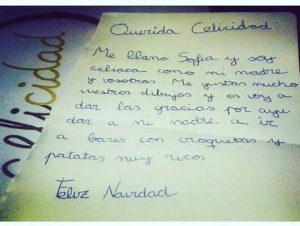 Celicidad
Querida Celicidad:
Me llamo Sofia y soy
celiaca como mi madre
y vosotras. Me gustan mucho
vuestros dibujos y os voy a
dar las gracias por ayu
dar a mi madre a ir
a bares con croquetas y
patatas muy ricos.
Feliz Navidad